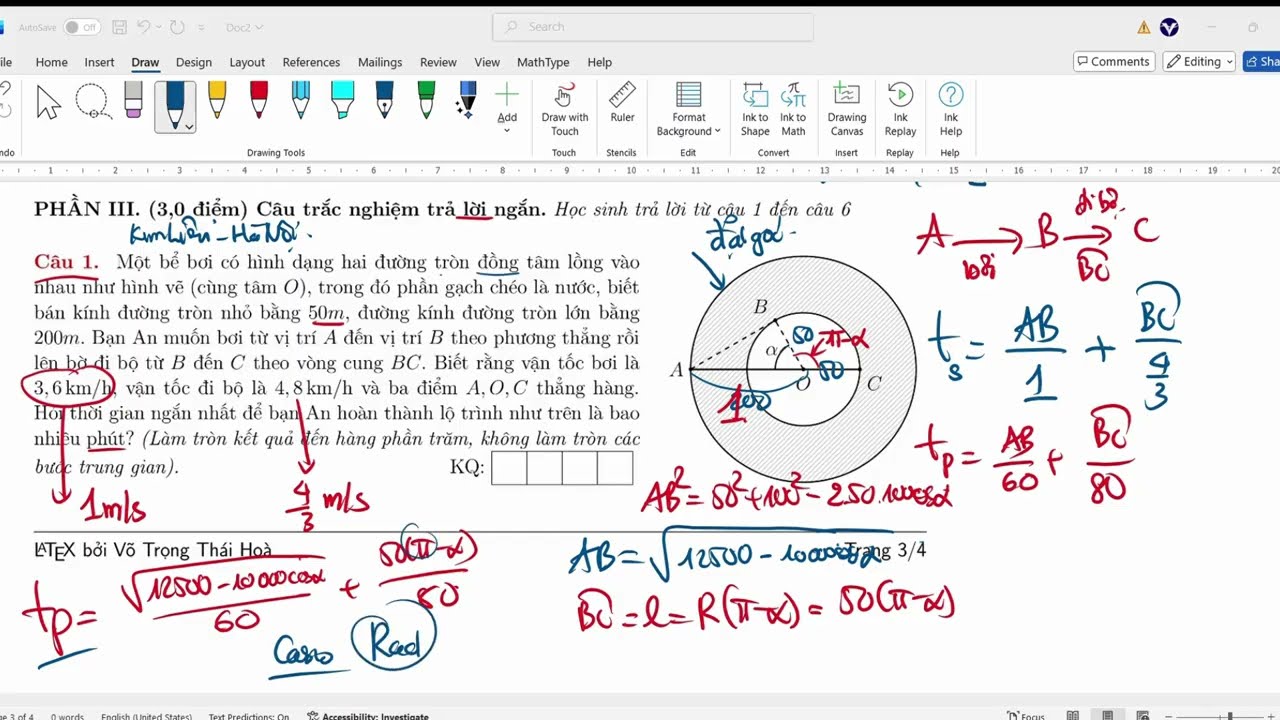 AutoSave Off Doc2 Search
File Home Insert Draw Design Layout References Mailings Review View MathType Help Comments Editing Sha
Undo Add Draw with Touch Ruler Format Background Ink to Shape Ink to Math Drawing Canvas Ink Replay Ink Help
Drawing Tools Touch Stencils Edit Convert Insert Replay Help
1 1 2 3 4 5 6 7 8 9 10 11 12 13 14 15 16 17 18 20
PHẦN III. (3,0 điểm) Câu trắc nghiệm trả lời ngắn. Học sinh trả lời từ câu 1 đến câu 6
Kim Liên - Hà Nội.
Câu 1. Một bể bơi có hình dạng hai đường tròn đồng tâm lồng vào
nhau như hình vẽ (cùng tâm O), trong đó phần gạch chéo là nước, biết
bán kính đường tròn nhỏ bằng 50m, đường kính đường tròn lớn bằng
200m. Bạn An muốn bơi từ vị trí A đến vị trí B theo phương thẳng rồi
lên bờ đi bộ từ B đến C theo vòng cung BC. Biết rằng vận tốc bơi là
3,6 km/h, vận tốc đi bộ là 4,8 km/h và ba điểm A, O, C thẳng hàng.
Hỏi thời gian ngắn nhất để bạn An hoàn thành lộ trình như trên là bao
nhiêu phút? (Làm tròn kết quả đến hàng phần trăm, không làm tròn các
bước trung gian).
KQ:
1m/s
4/3 m/s
B
50
π-α
α
A
50
O
C
100
1
A → B đi bộ → C
bơi BC
t_s = AB/1 + BC/(4/3)
t_p = AB/60 + BC/80
AB² = 50² + 100² - 2.50.100cosα
LATEX bởi Võ Trọng Thái Hoà
Trang 3/4
AB = √(12500 - 10000cosα)
t_p = √(12500 - 10000cosα)/60 + 50(π-α)/80
BC = l = R(π-α) = 50(π-α)
Casio Rad
Page 3 of 4 0 words English (United States) Text Predictions: On Accessibility: Investigate Focus